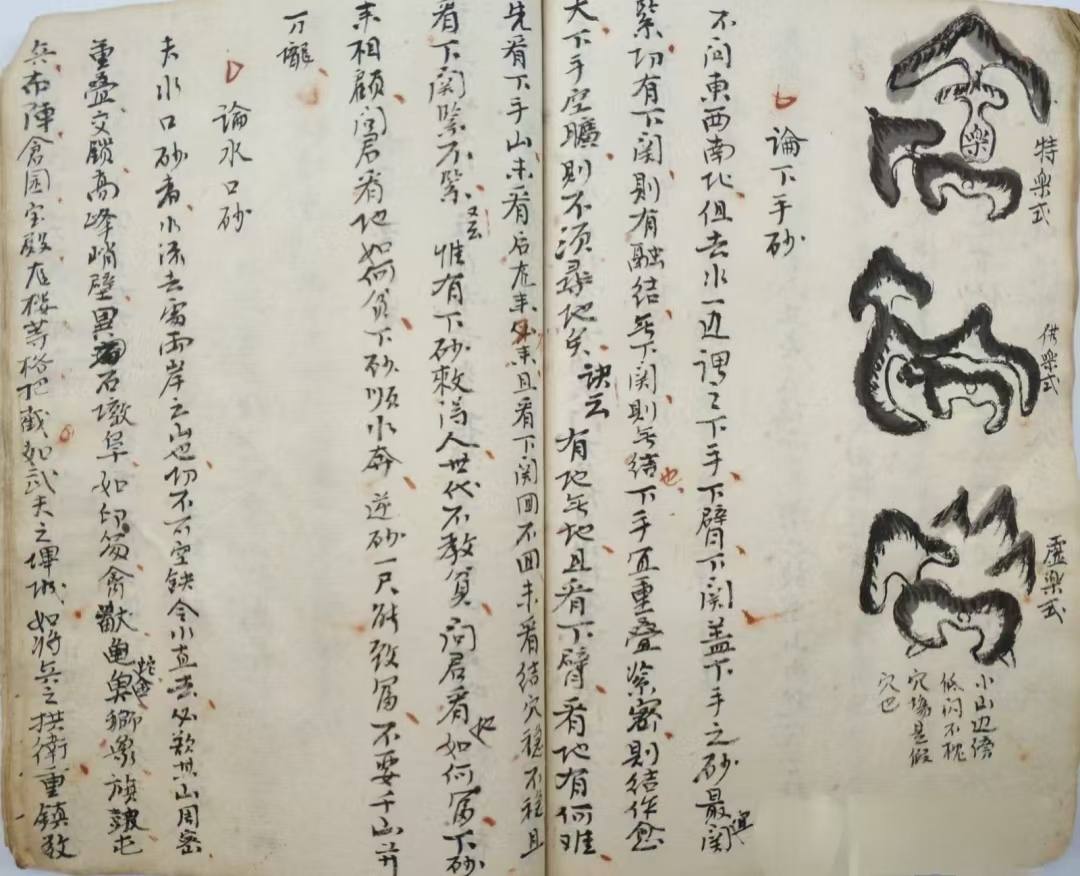 特樂式
樂
供樂式
虛樂式
小山边傍
低闪不枕
穴塲是假
穴也
論下手砂
不问東西南北但去水一边谓之下手下臂下関盖下手之砂最関
緊切有下関則有融结无下関則无结也下手宜重叠紧密則结作愈
大下手空曠則不须尋地矣 訣云 有地无地且看下臂看地有何难
先看下手山未看后龙来未且看下関囬不囬未看结穴穩不穩且
看下関緊不緊 又云 惟有下砂救得人世代不教貧问君看地如何富下砂
来相顧问君看地如何貧下砂順水奔逆砂一尺能致富不要千山并
万壠
論水口砂
夫水口砂者水流去處兩岸之山也切不可空缺令水直去必欲其山周密
重叠交鎖高峰峭壁異石墩阜如印笏禽獸龜蛇魚獅象旗鼓屯
兵布陣倉囷宝殿龙楼等格把截如武夫之埤城如將兵之拱衛重鎮敎